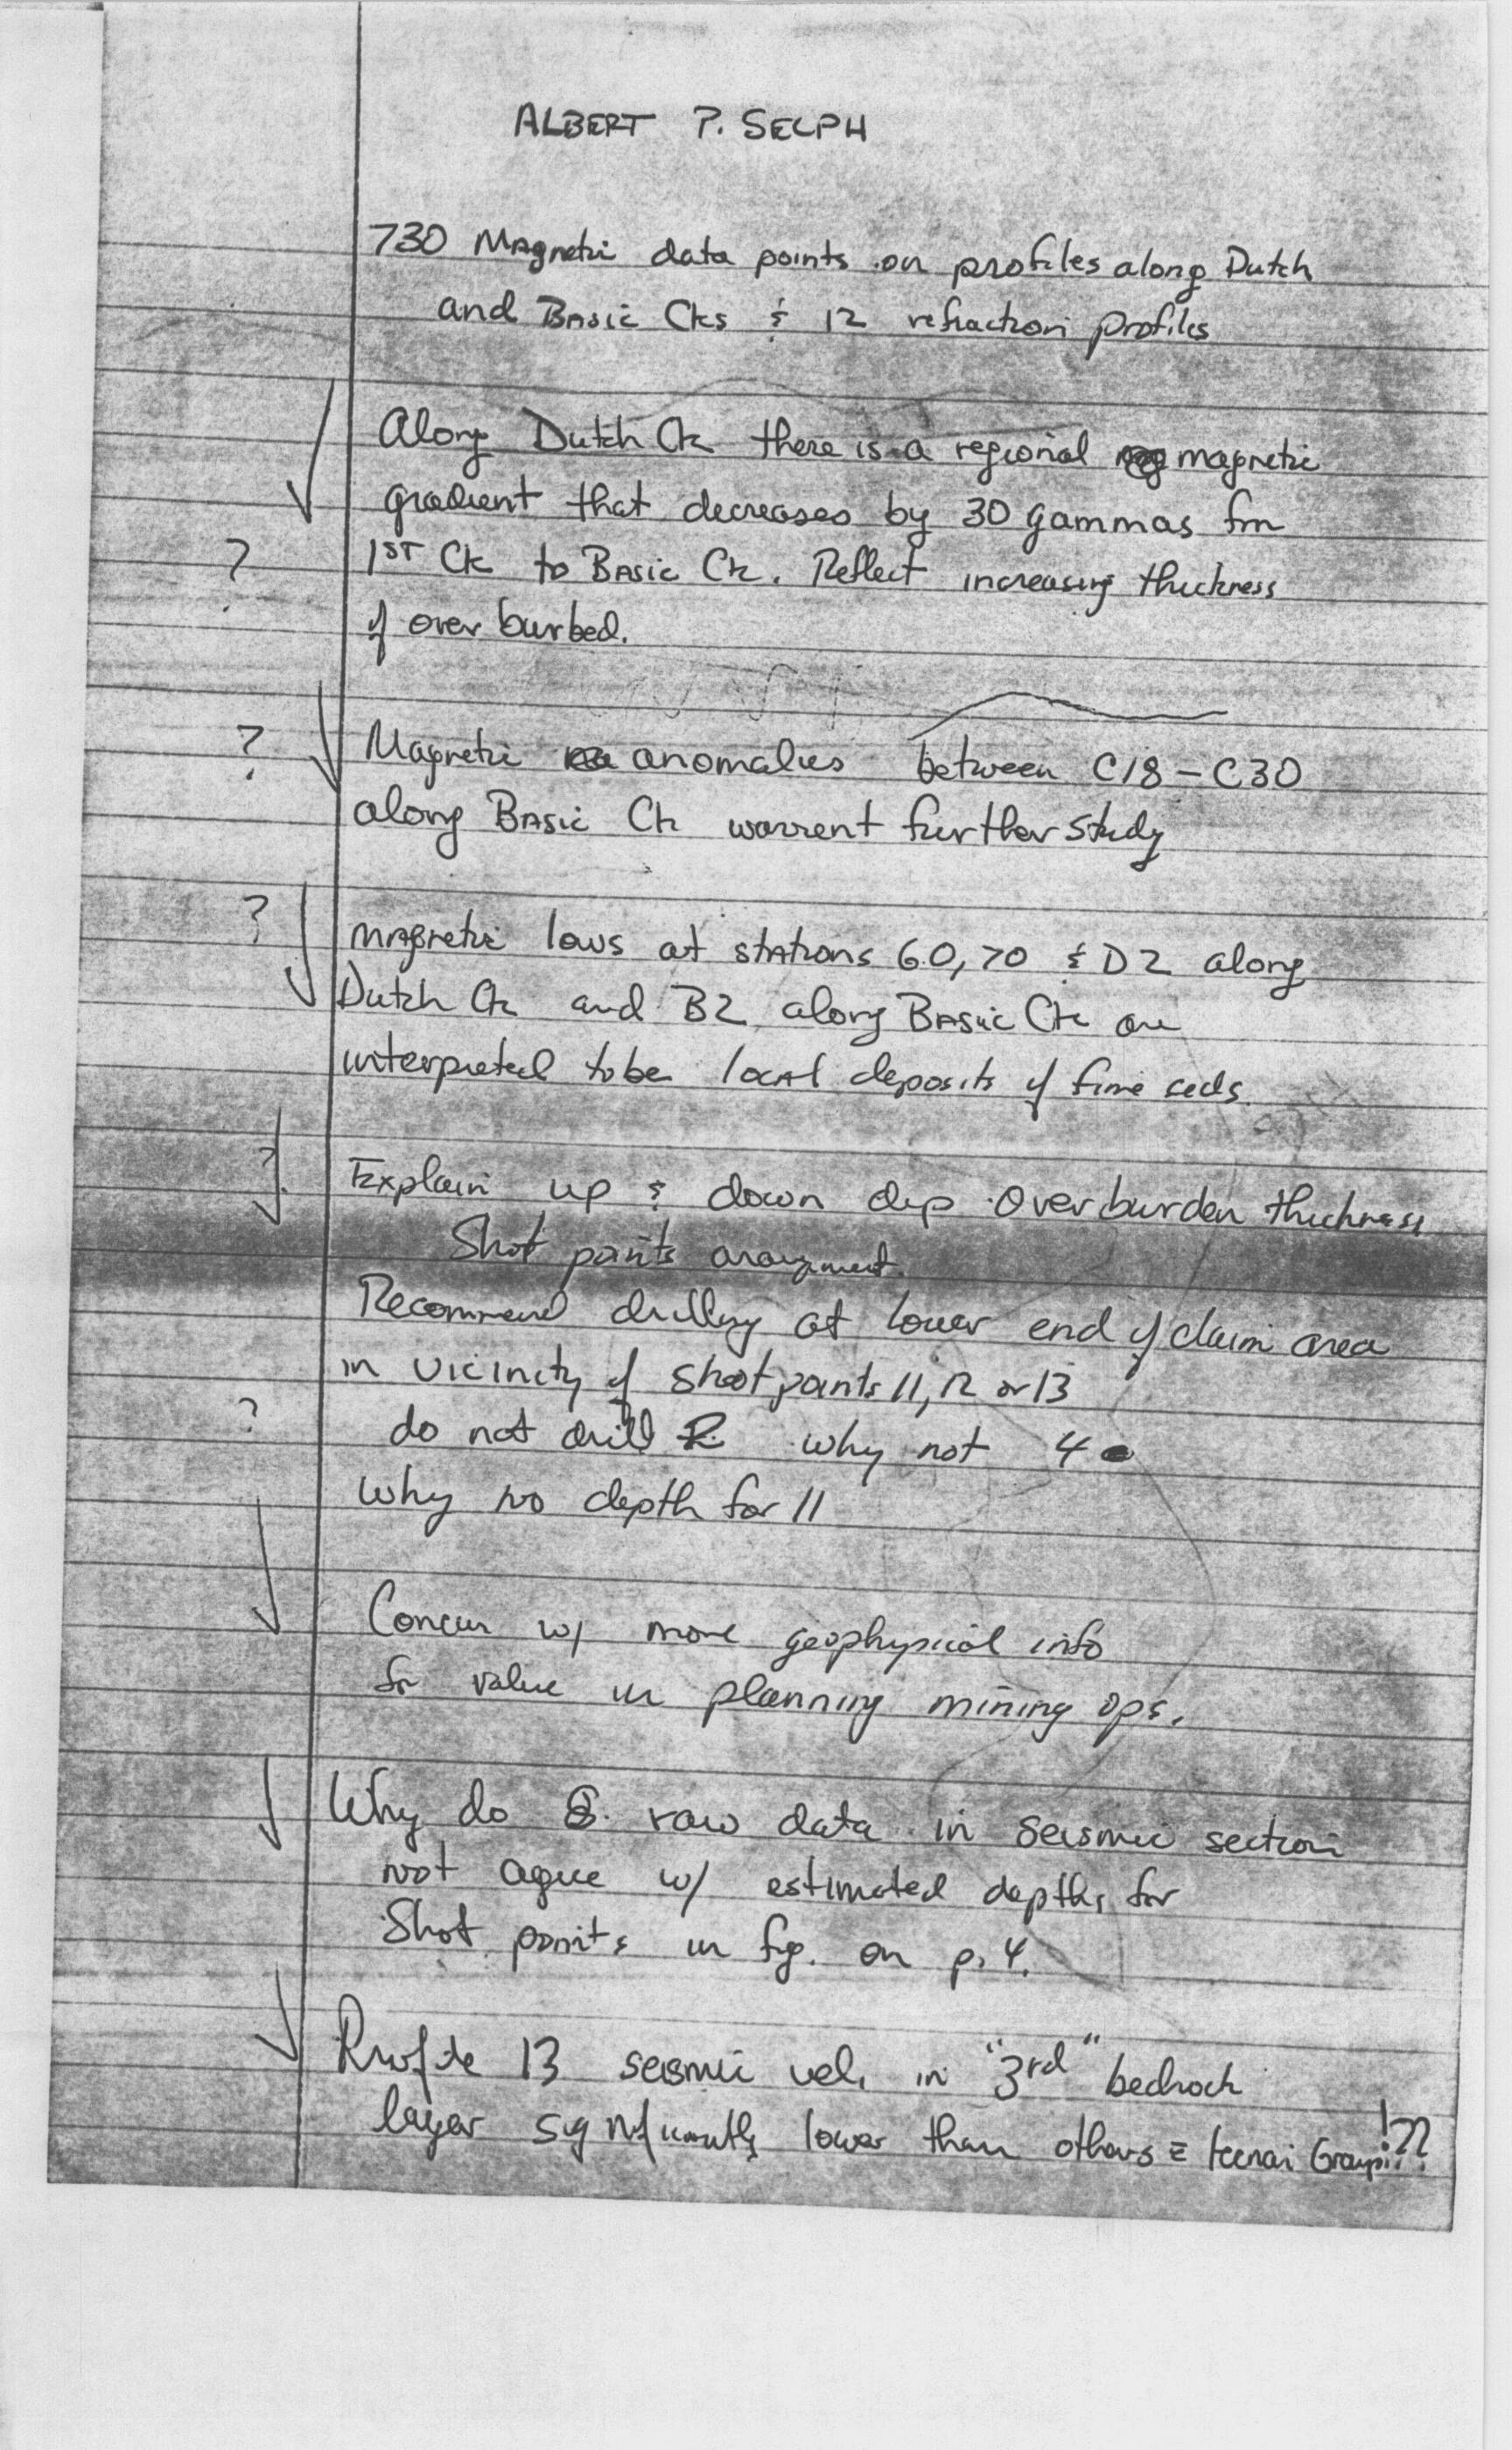 ALBERT P. SELPH
730 Magnetic data points on profiles along Dutch
and Basic Cks & 12 refraction profiles
Along Dutch Ck there is a regional magnetic
gradient that decreases by 30 gammas fm
? 1ST Ck to Basic Ck. Reflect increasing thickness
of over burbed.
? Magnetic anomalies between C18 - C30
along Basic Ck warrent further study
? Magnetic lows at stations 60, 70 & D2 along
Dutch Ck and B2 along Basic Ck are
interpreted to be local deposits of fine seds.
? Explain up & down dip overburden thickness
Shot points arangment.
Recommend drilling at lower end of claim area
in vicinity of shot points 11, 12 or 13
? do not drill why not 4
Why no depth for 11
Concur w/ more geophysical info
for value in planning mining ops.
Why do raw data in seismic section
not agree w/ estimated depths for
Shot points in fig. on p. 4.
Profile 13 seismic vel. in "3rd" bedrock
layer significantly lower than others = Kenai Group!??